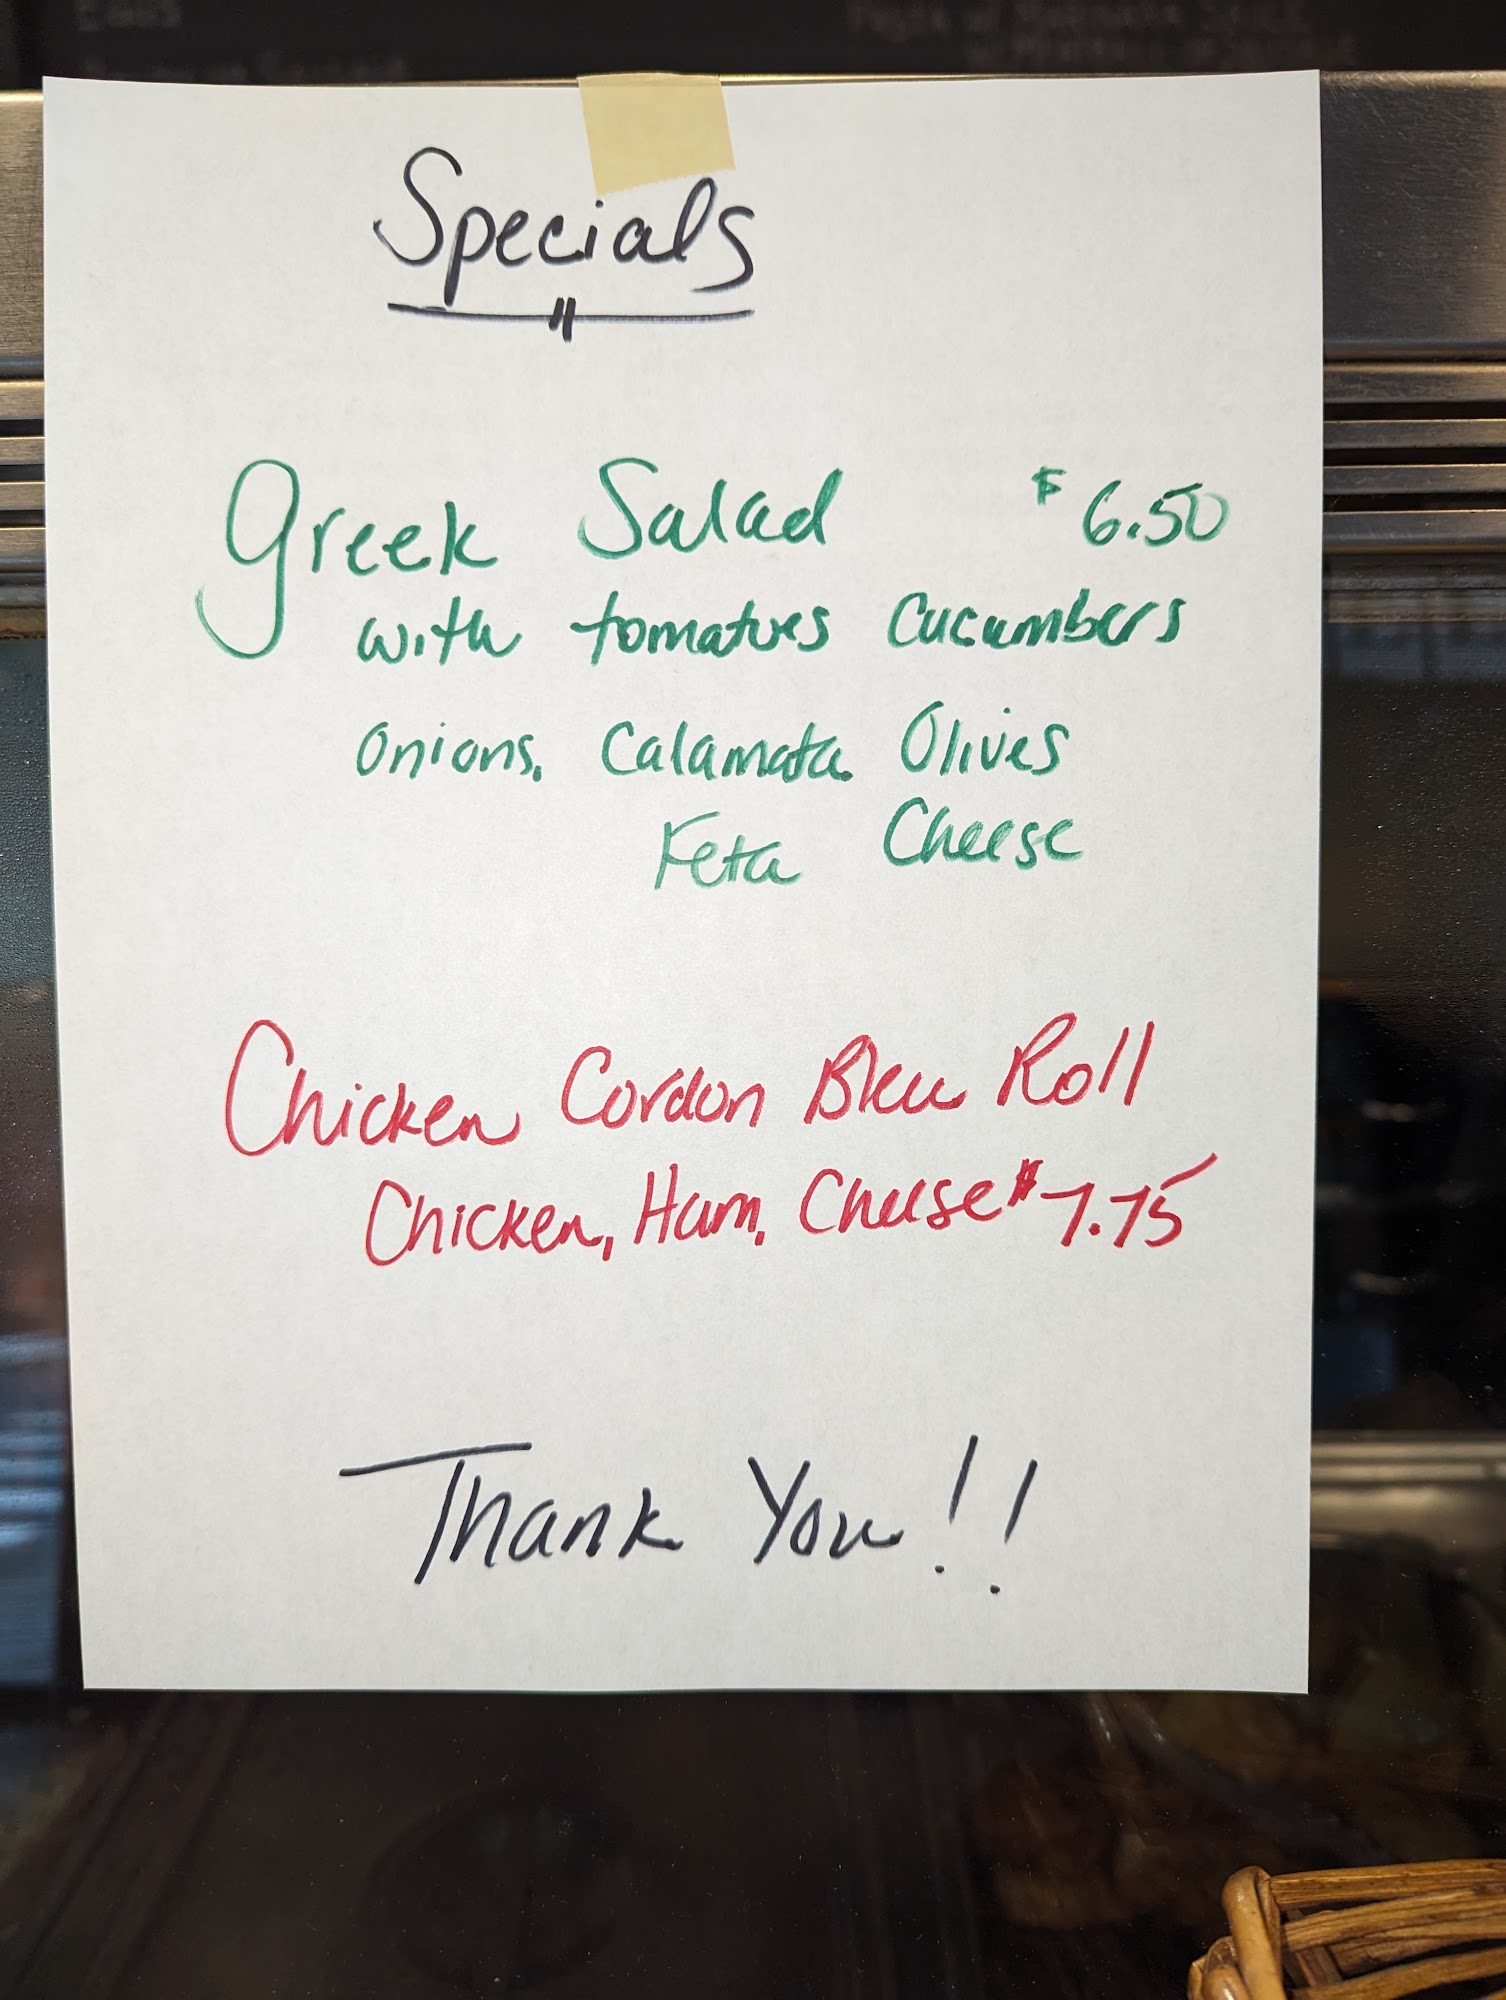 Specials
Greek Salad $6.50
with tomatoes Cucumbers
Onions, Calamata Olives
Feta Cheese
Chicken Cordon Bleu Roll
Chicken, Ham, Cheese $7.75
Thank You!!